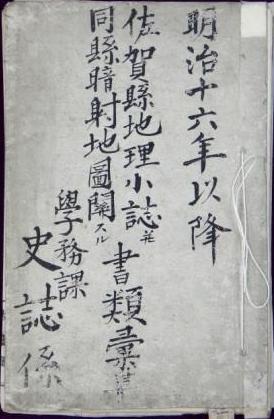 明治十六年以降
佐賀縣地理小誌並
同縣暗射地圖関スル書類彙集
學務課
史誌係